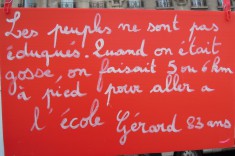 Les peuples ne sont pas
éduqués. Quand on était
gosse, on faisait 5 ou 6 km
à pied pour aller a
l'école Gérard 83 ans